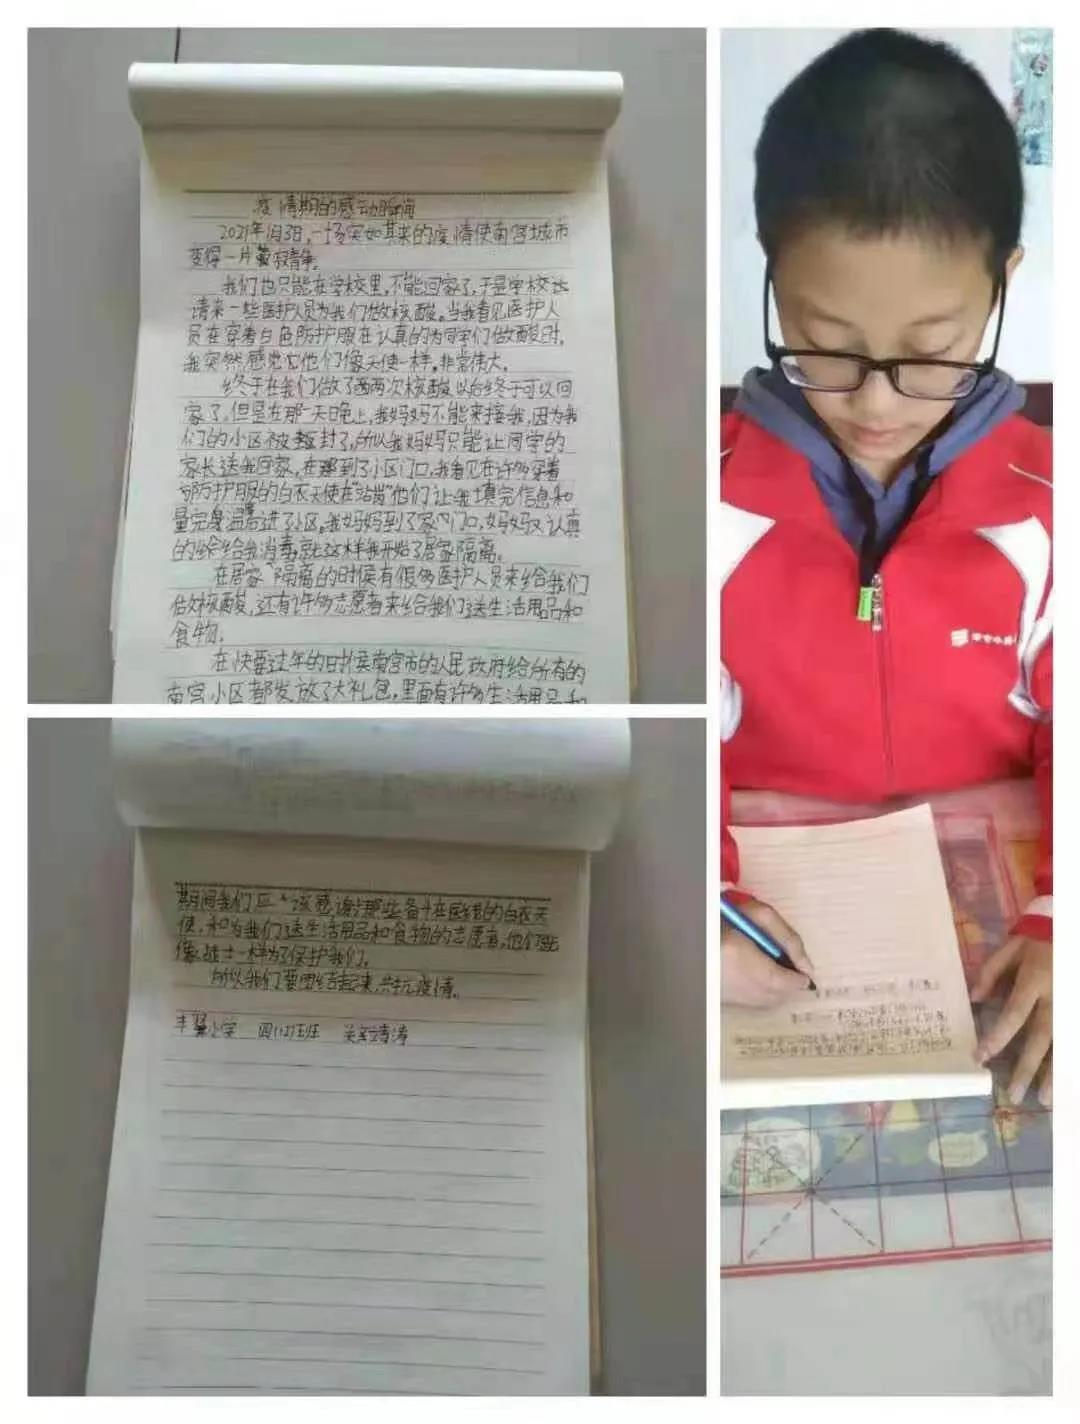 疫情期的感动瞬间
2021年1月3日,一场突如其来的疫情使南宫城市
变得一片寂静。
我们也只能在学校里,不能回家了,于是学校还
请来一些医护人员为我们做核酸。当我看见医护人
员在穿着白色防护服在认真的为同学们做酸时,
我突然感觉他们像天使一样,非常伟大。
终于在我们做了两次核酸以后终于可以回
家了,但是在那一天晚上,我妈妈不能来接我,因为我
们的小区被封了,所以我妈妈只能让同学的
家长送我回家。在那到了小区门口,我看见在许多穿着
防护服的白衣天使在"站岗"他们让我填完信息和
量完身温后进了小区。我妈妈到了家门口,妈妈又认真
的给给我消毒,就这样我开始了居家隔离。
在居家隔离的时候有很多医护人员来给我们
做核酸,还有许多志愿者来给我们送生活用品和
食物。
在快要过年的时候南宫市的人民政府给所有的
南宫小区都发放了大礼包,里面有许多生活用品和
期间我们应该感谢那些奋斗在医线的白衣天
使,和为我们送生活用品和食物的志愿者,他们就
像战士一样为了保护我们。
所以我们要团结起来,共抗疫情。
丰翼小学 四(12)班